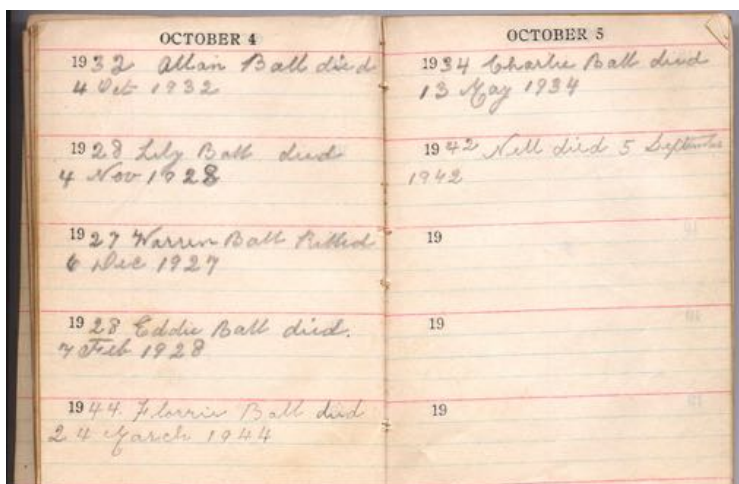 OCTOBER 4
1932 Allan Ball died
4 Oct 1932
1928 Lily Ball died
4 Nov 1928
1927 Warren Ball Killed
6 Dec 1927
1928 Eddie Ball died.
7 Feb 1928
1944. Florrie Ball died
24 March 1944
OCTOBER 5
1934 Charlie Ball died
13 May 1934
1942 Nell died 5 September
1942
19
19
19